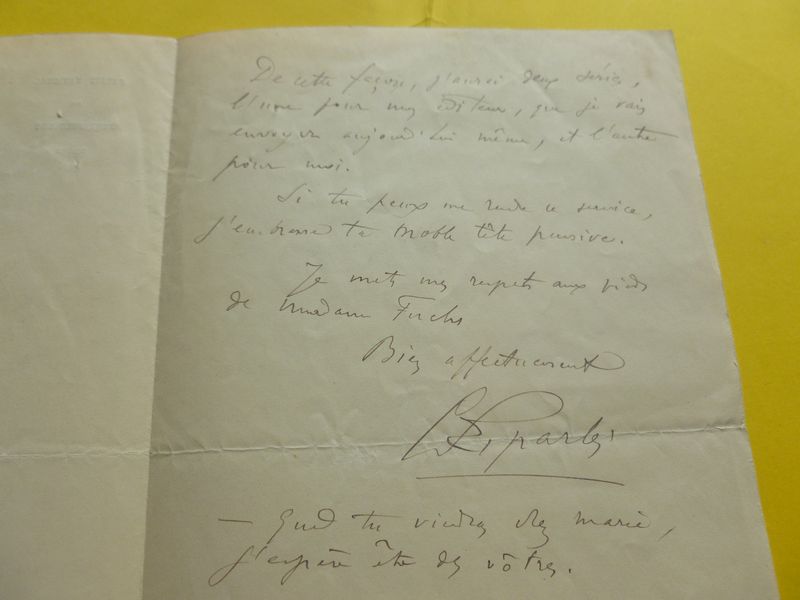 De cette façon, j'aurai deux séries,
l'une pour mon éditeur, que je vais
envoyer aujourd'hui même, et l'autre
pour moi.
Si tu peux me rendre ce service,
j'embrasse ta noble tête pensive.
Je mets mes respects aux pieds
de Madame Fuchs
Bien affectueusement
— Quand tu viendras chez Marie,
j'espère être des vôtres.